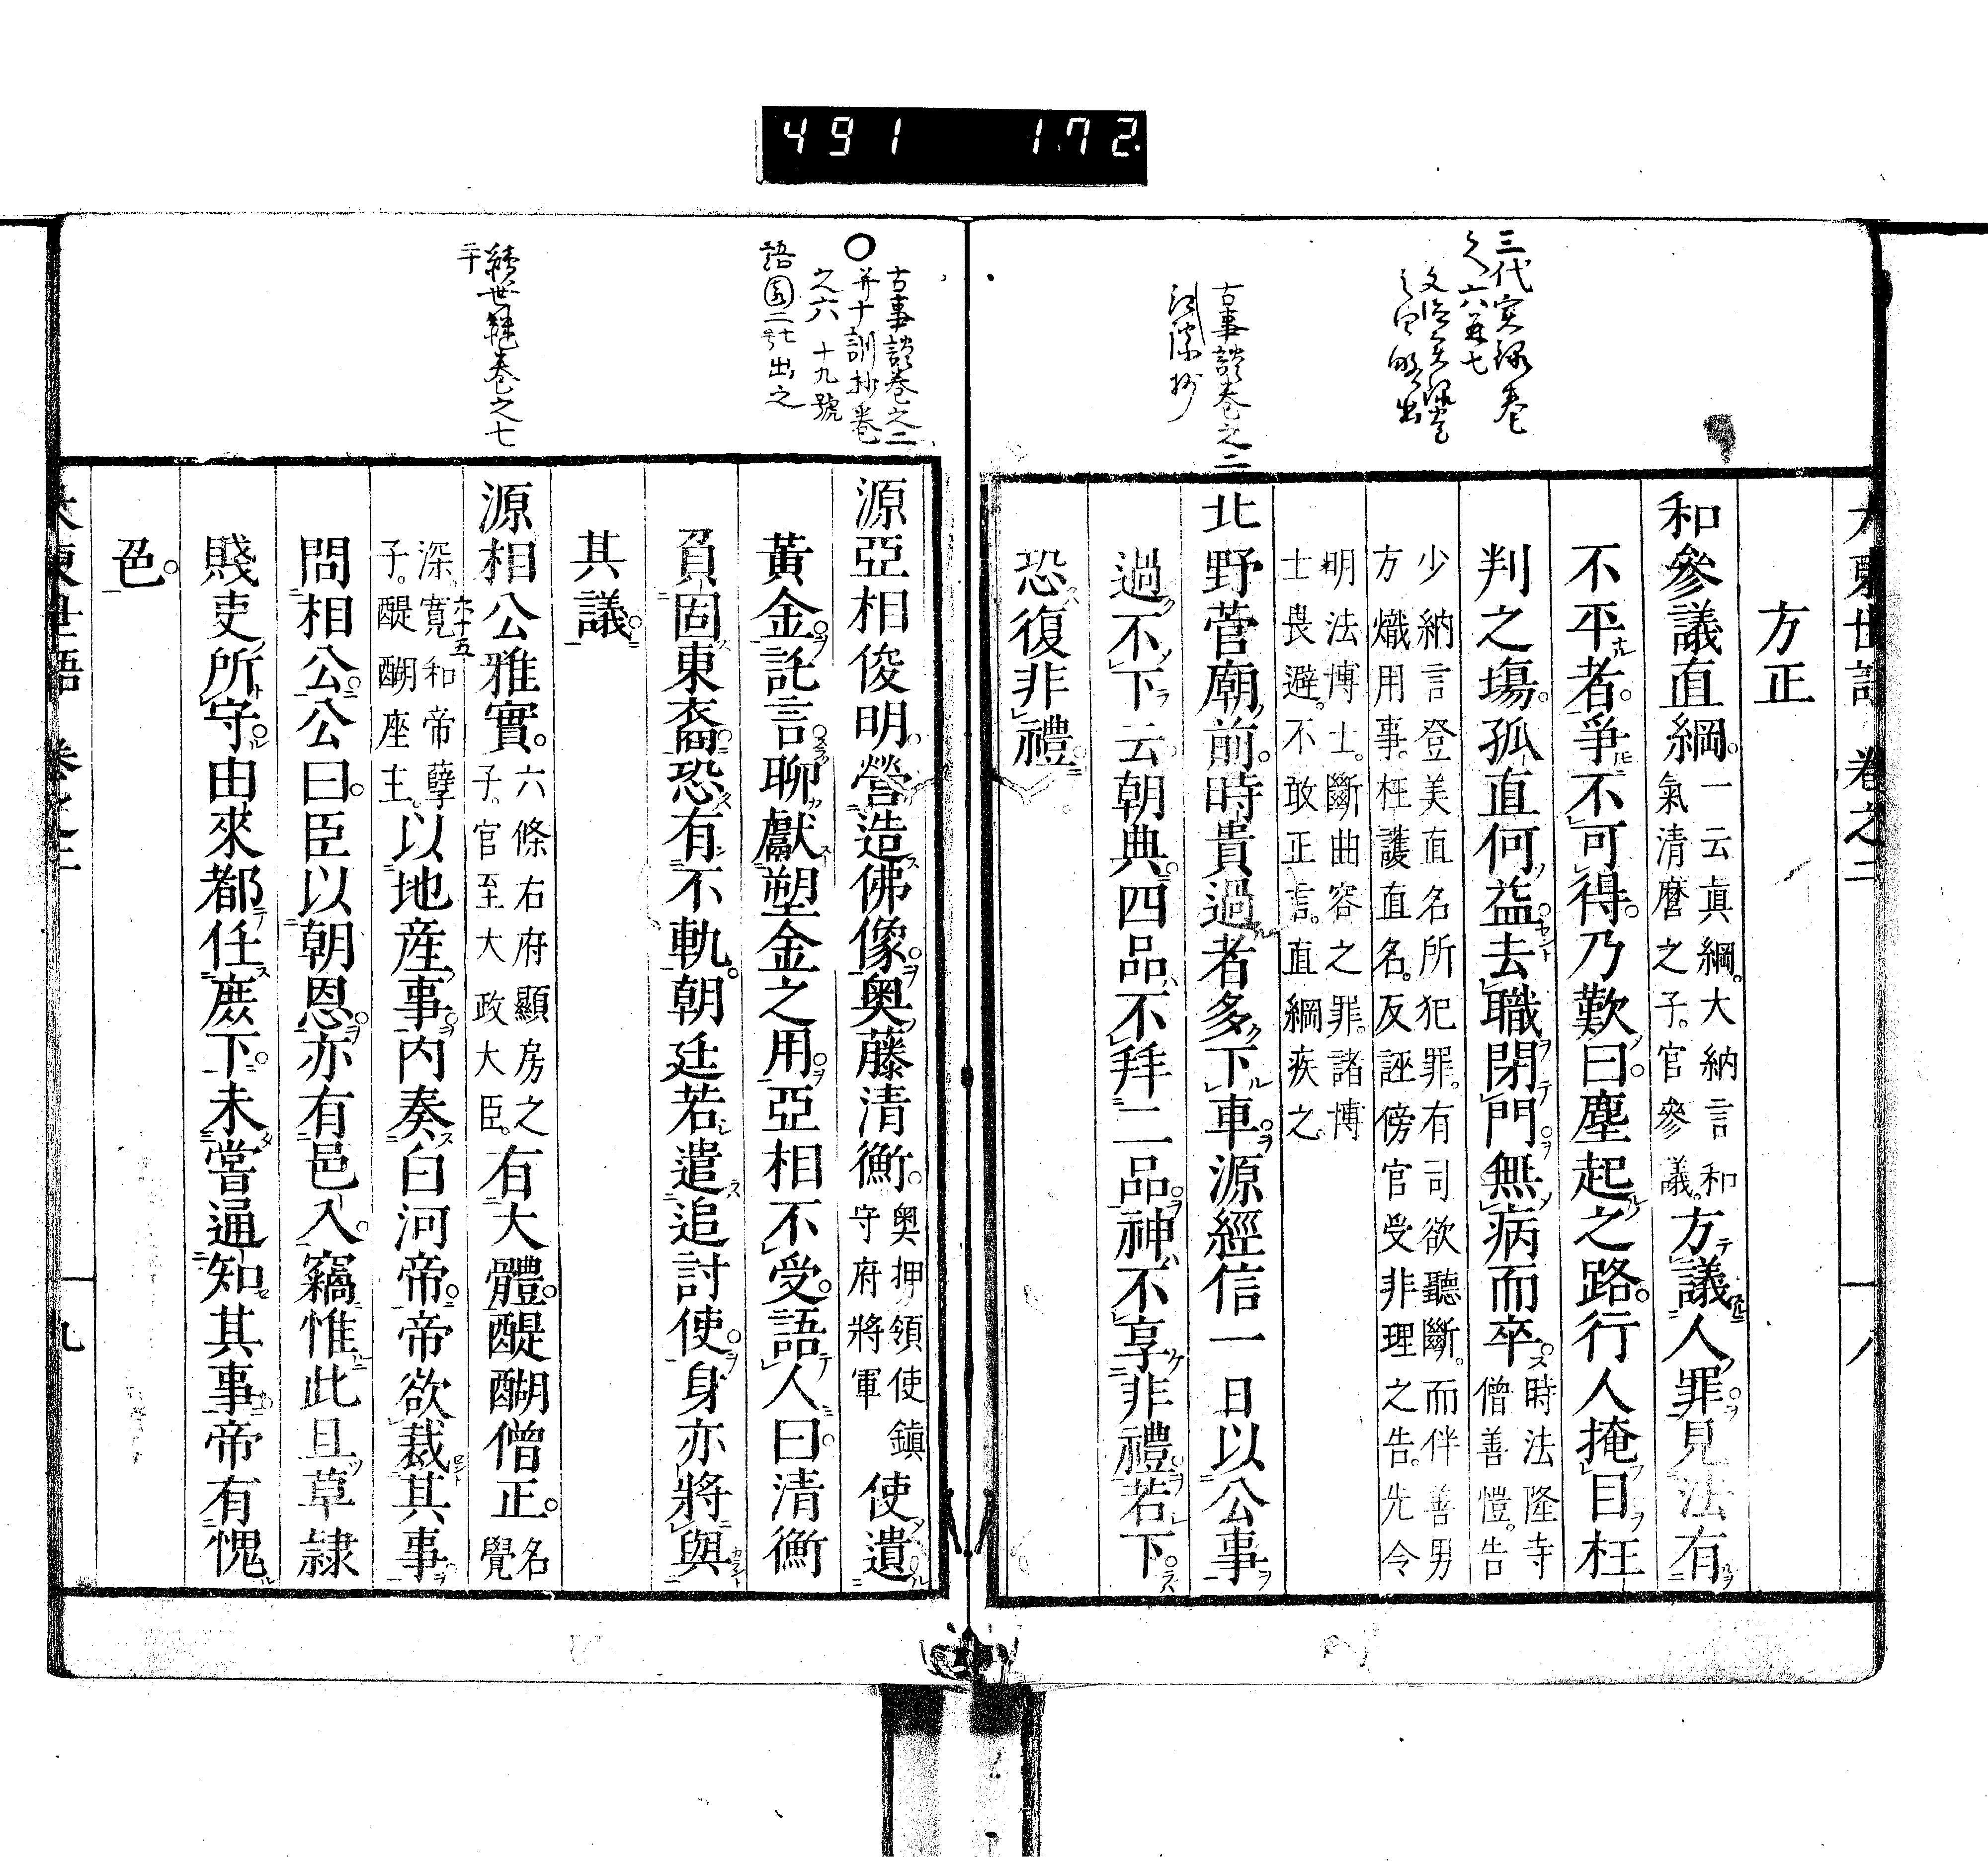 491 172.
三代実録巻
古事談巻之二
大東世語 卷之二
方正
和參議直綱。一云眞綱。大納言和氣清麿之子。官參議。方議人罪見法有
不平者。爭不可得。乃歎曰塵起之路。行人掩目枉
判之塲。孤直何益去職閉門無病而卒。時法隆寺僧善愷。告
少納言登美直名所犯罪。有司欲聽斷。而伴善男
方熾用事。枉護直名。反誣傍官受非理之告。先令
明法博士。斷曲容之罪。諸博
士畏避。不敢正言。直綱疾之。
北野菅廟前。時貴過者多下車。源經信一日以公事
過不下云朝典。四品不拜二品。神不享非禮。若下
恐復非禮。
古事談巻之二
并十訓抄巻
之六 十九號
語園二 出之
續世繼巻之七
二十
源亞相俊明。營造佛像。奥藤清衡。奥押領使鎮守府將軍使遺
黄金。託言聊獻塑金之用。亞相不受。語人曰。清衡
負固東裔。恐有不軌。朝廷若遣追討使。身亦將與
其議。
源相公雅實。六條右府顯房之子。官至大政大臣。有大體。醍醐僧正。名覺
深、寛和帝孽子。醍醐座主。以地産事内奏白河帝。帝欲裁其事。
問相公。公曰。臣以朝恩。亦有邑入。竊惟此且草隷
賤吏所守。由來都任麾下。未嘗逼知其事。帝有愧
色。
大東世語 卷之二 十九